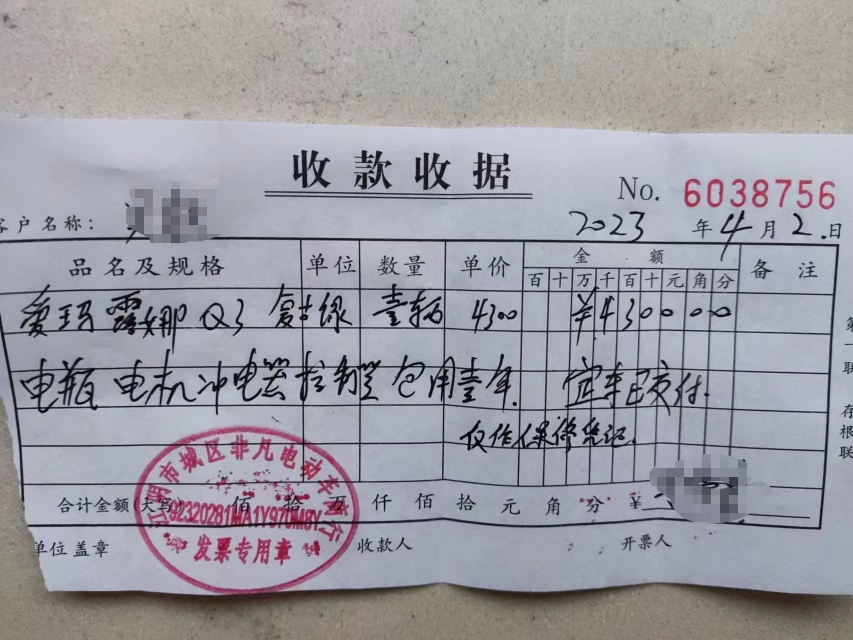 收款收据
No. 6038756
客户名称：
2023 年 4 月 2 日
品名及规格 单位 数量 单价 金额 备注
百 十 万 千 百 十 元 角 分
爱玛 露娜 Q3 复古绿 壹辆 4300 ¥430000
电瓶 电机 冲电器 控制器 包用壹年. 宜车已交付.
仅作保修凭记.
合计金额(大写) 佰 拾 万 仟 佰 拾 元 角 分 ¥
单位盖章 收款人 开票人
市城区非凡电动车行
发票专用章
第一联 存根联